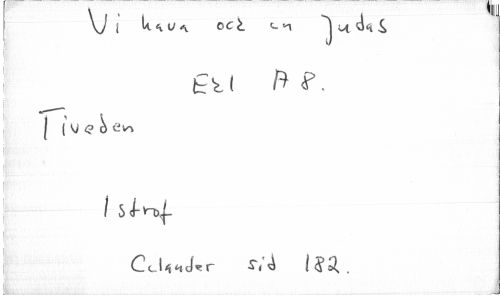 Vi hava ock en Judas
Ek1 A 8.
Tiveden
1 strof
Celander sid 182.